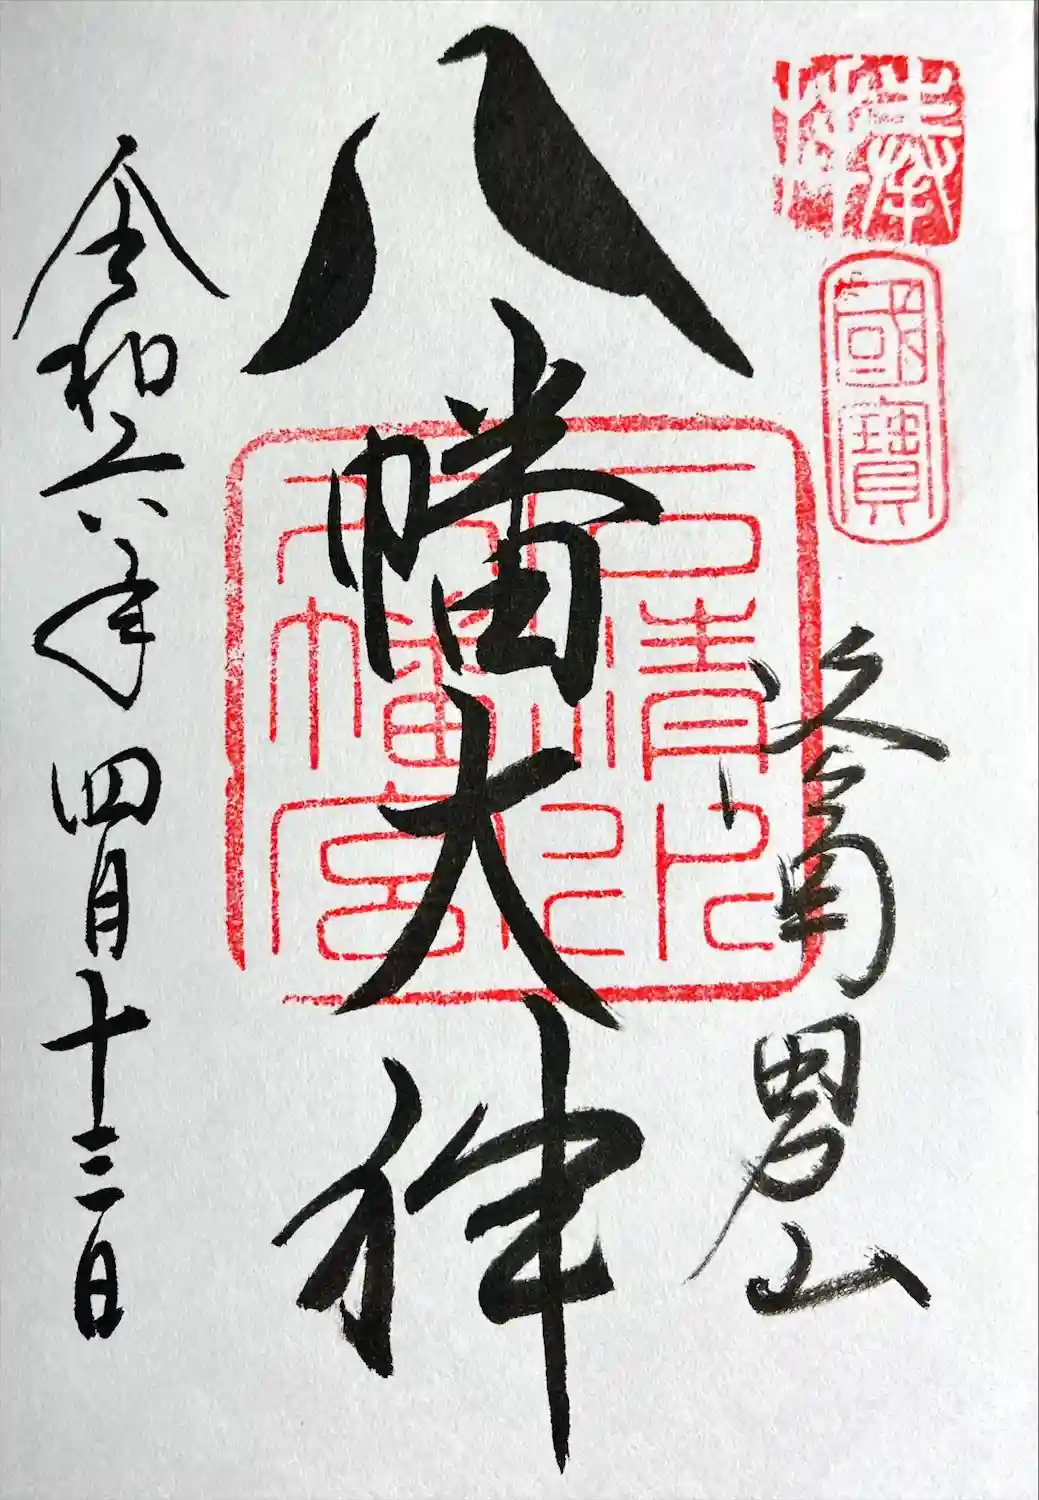 奉拝
國寶
洛南 男山
八幡大神
石清水
八幡宮
令和六年 四月十三日